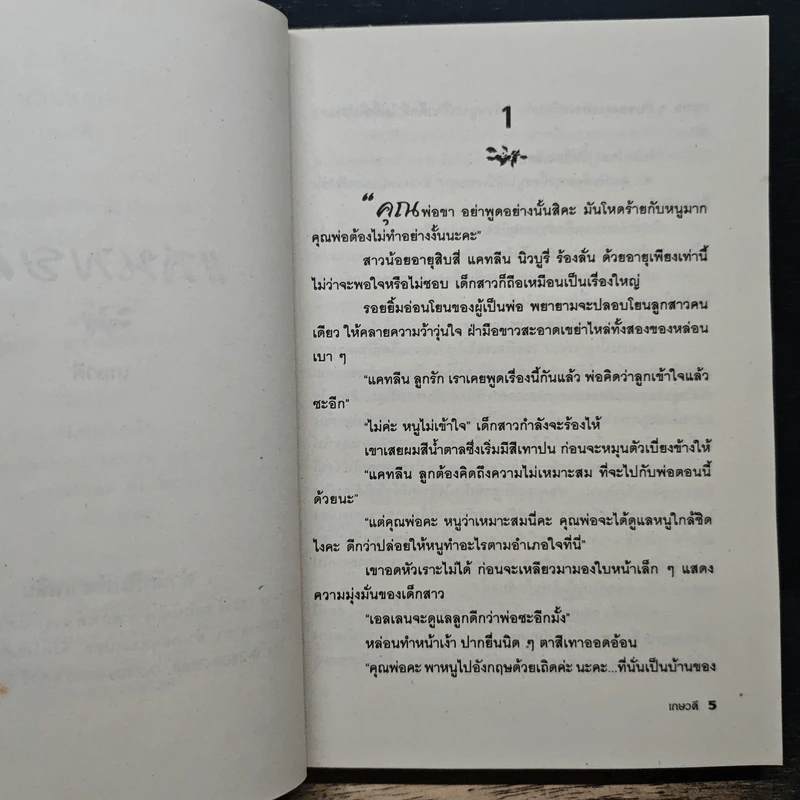 1
“คุณพ่อขา อย่าพูดอย่างนั้นสิคะ มันโหดร้ายกับหนูมาก
คุณพ่อต้องไม่ทำอย่างงั้นนะคะ”
สาวน้อยอายุสิบสี่ แคทลีน นิวบูรี่ ร้องลั่น ด้วยอายุเพียงเท่านี้
ไม่ว่าจะพอใจหรือไม่ชอบ เด็กสาวก็ถือเหมือนเป็นเรื่องใหญ่
รอยยิ้มอ่อนโยนของผู้เป็นพ่อ พยายามจะปลอบโยนลูกสาวคน
เดียว ให้คลายความว้าวุ่นใจ ฝ่ามือขาวสะอาดเขย่าไหล่ทั้งสองของหล่อน
เบา ๆ
“แคทลีน ลูกรัก เราเคยพูดเรื่องนี้กันแล้ว พ่อคิดว่าลูกเข้าใจแล้ว
ซะอีก”
“ไม่ค่ะ หนูไม่เข้าใจ” เด็กสาวกำลังจะร้องไห้
เขาเสยผมสีน้ำตาลซึ่งเริ่มมีสีเทาปน ก่อนจะหมุนตัวเบี่ยงข้างให้
“แคทลีน ลูกต้องคิดถึงความไม่เหมาะสม ที่จะไปกับพ่อตอนนี้
ด้วยนะ”
“แต่คุณพ่อคะ หนูว่าเหมาะสมนี่คะ คุณพ่อจะได้ดูแลหนูใกล้ชิด
ไงคะ ดีกว่าปล่อยให้หนูทำอะไรตามอำเภอใจที่นี่”
เขาอดหัวเราะไม่ได้ ก่อนจะเหลียวมามองใบหน้าเล็ก ๆ แสดง
ความมุ่งมั่นของเด็กสาว
“เอลเลนจะดูแลลูกดีกว่าพ่อซะอีกมั้ง”
หล่อนทำหน้าเง้า ปากยื่นนิด ๆ ตาสีเทาออดอ้อน
“คุณพ่อคะ พาหนูไปอังกฤษด้วยเถิดค่ะ นะคะ...ที่นั่นเป็นบ้านของ
เกษวดี 5